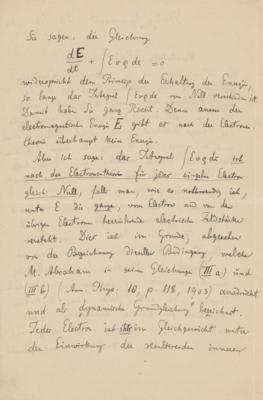 Sie sagen: die Gleichung
dE/dt + ∫ E v ρ dv = 0
widerspricht dem Princip der Erhaltung der Energie,
so lange das Integral ∫ E v ρ dv von Null verschieden ist.
Damit haben Sie ganz Recht. Denn ausser der
electromagnetischen Energie E gibt es nach der Electronen-
theorie überhaupt keine Energie.
Aber ich sage: das Integral ∫ E v ρ dv ist
nach der Electronentheorie für jedes einzelne Electron
gleich Null, falls man, wie es nothwendig ist,
unter E die ganze, vom Electron und von den
übrigen Electronen herrührende electrische Feldstärke
versteht. Dies ist im Grunde, abgesehen
von der Bezeichnung dieselbe Bedingung, welche
M. Abraham in seinen Gleichungen (III a) und
(III b) (Ann. Phys. 10, p. 118, 1903) ausdrückt
und als „dynamische Grundgleichung" bezeichnet.
Jedes Electron ist stets im Gleichgewicht unter
der Einwirkung der resultierenden inneren